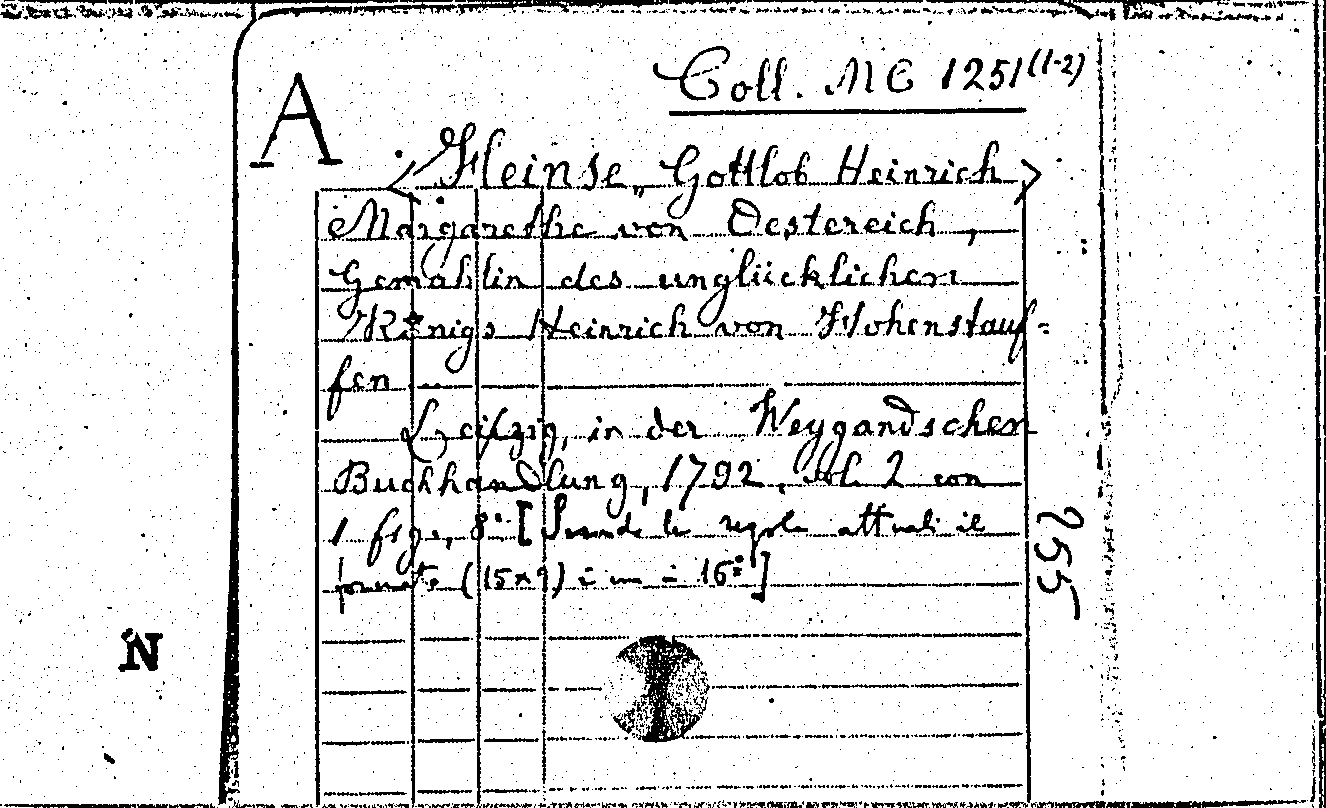 Coll. MC 1251 (1-2)
A
<Heinse, Gottlob Heinrich>
Margarethe von Oestereich,
Gemahlin des unglücklichen
Königs Heinrich von Hohenstauf=
fen
Leipzig, in der Weygandschen
Buchhandlung, 1792, vol. 2 con
1 fig., 8° [Secondo le regole attuali il
formato (15x9) è un 16°]
255
N